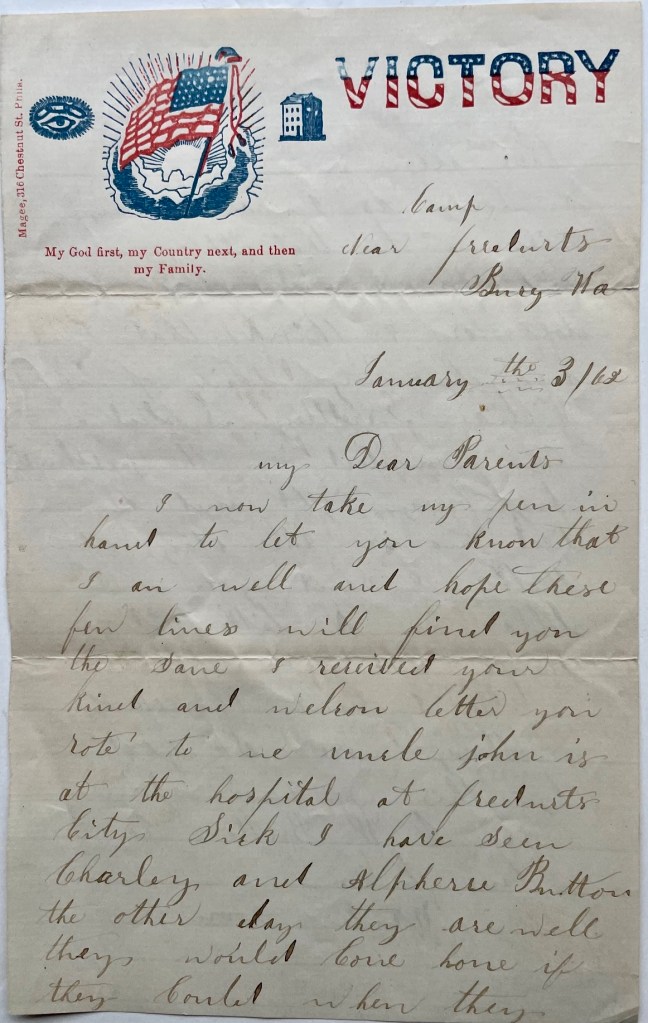 VICTORY
Magee, 316 Chestnut St. Phila.
My God first, my Country next, and then
my Family.
Camp
Near fredurts
Burg Va
January the 3/62
my Dear Parents
I now take my pen in
hand to let you know that
I am well and hope these
few lines will find you
the Same I received your
kind and welcon letter you
rote to me uncle john is
at the hospital at fredurts
City Sick I have Seen
Charley and Button
the other day they are well
they would Come home if
they Could when they